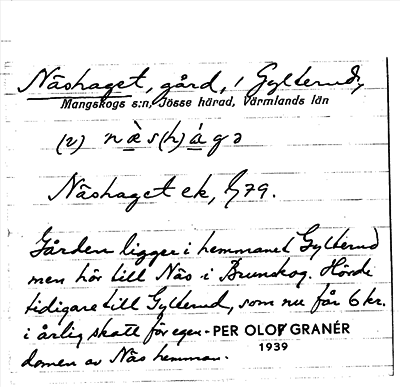 Näshaget, gård, i Gylterud,
Mangskogs s:n, Jösse härad, Värmlands län
(2) næ̀s(h)ágə
Näshaget ek, 79.
Gården ligger i hemmanet Gylterud
men hör till Näs i Brunskog. Hörde
tidigare till Gylterud, som nu får 6 kr.
i årlig skatt för egen- PER OLOF GRANÉR
domen av Näs hemman. 1939